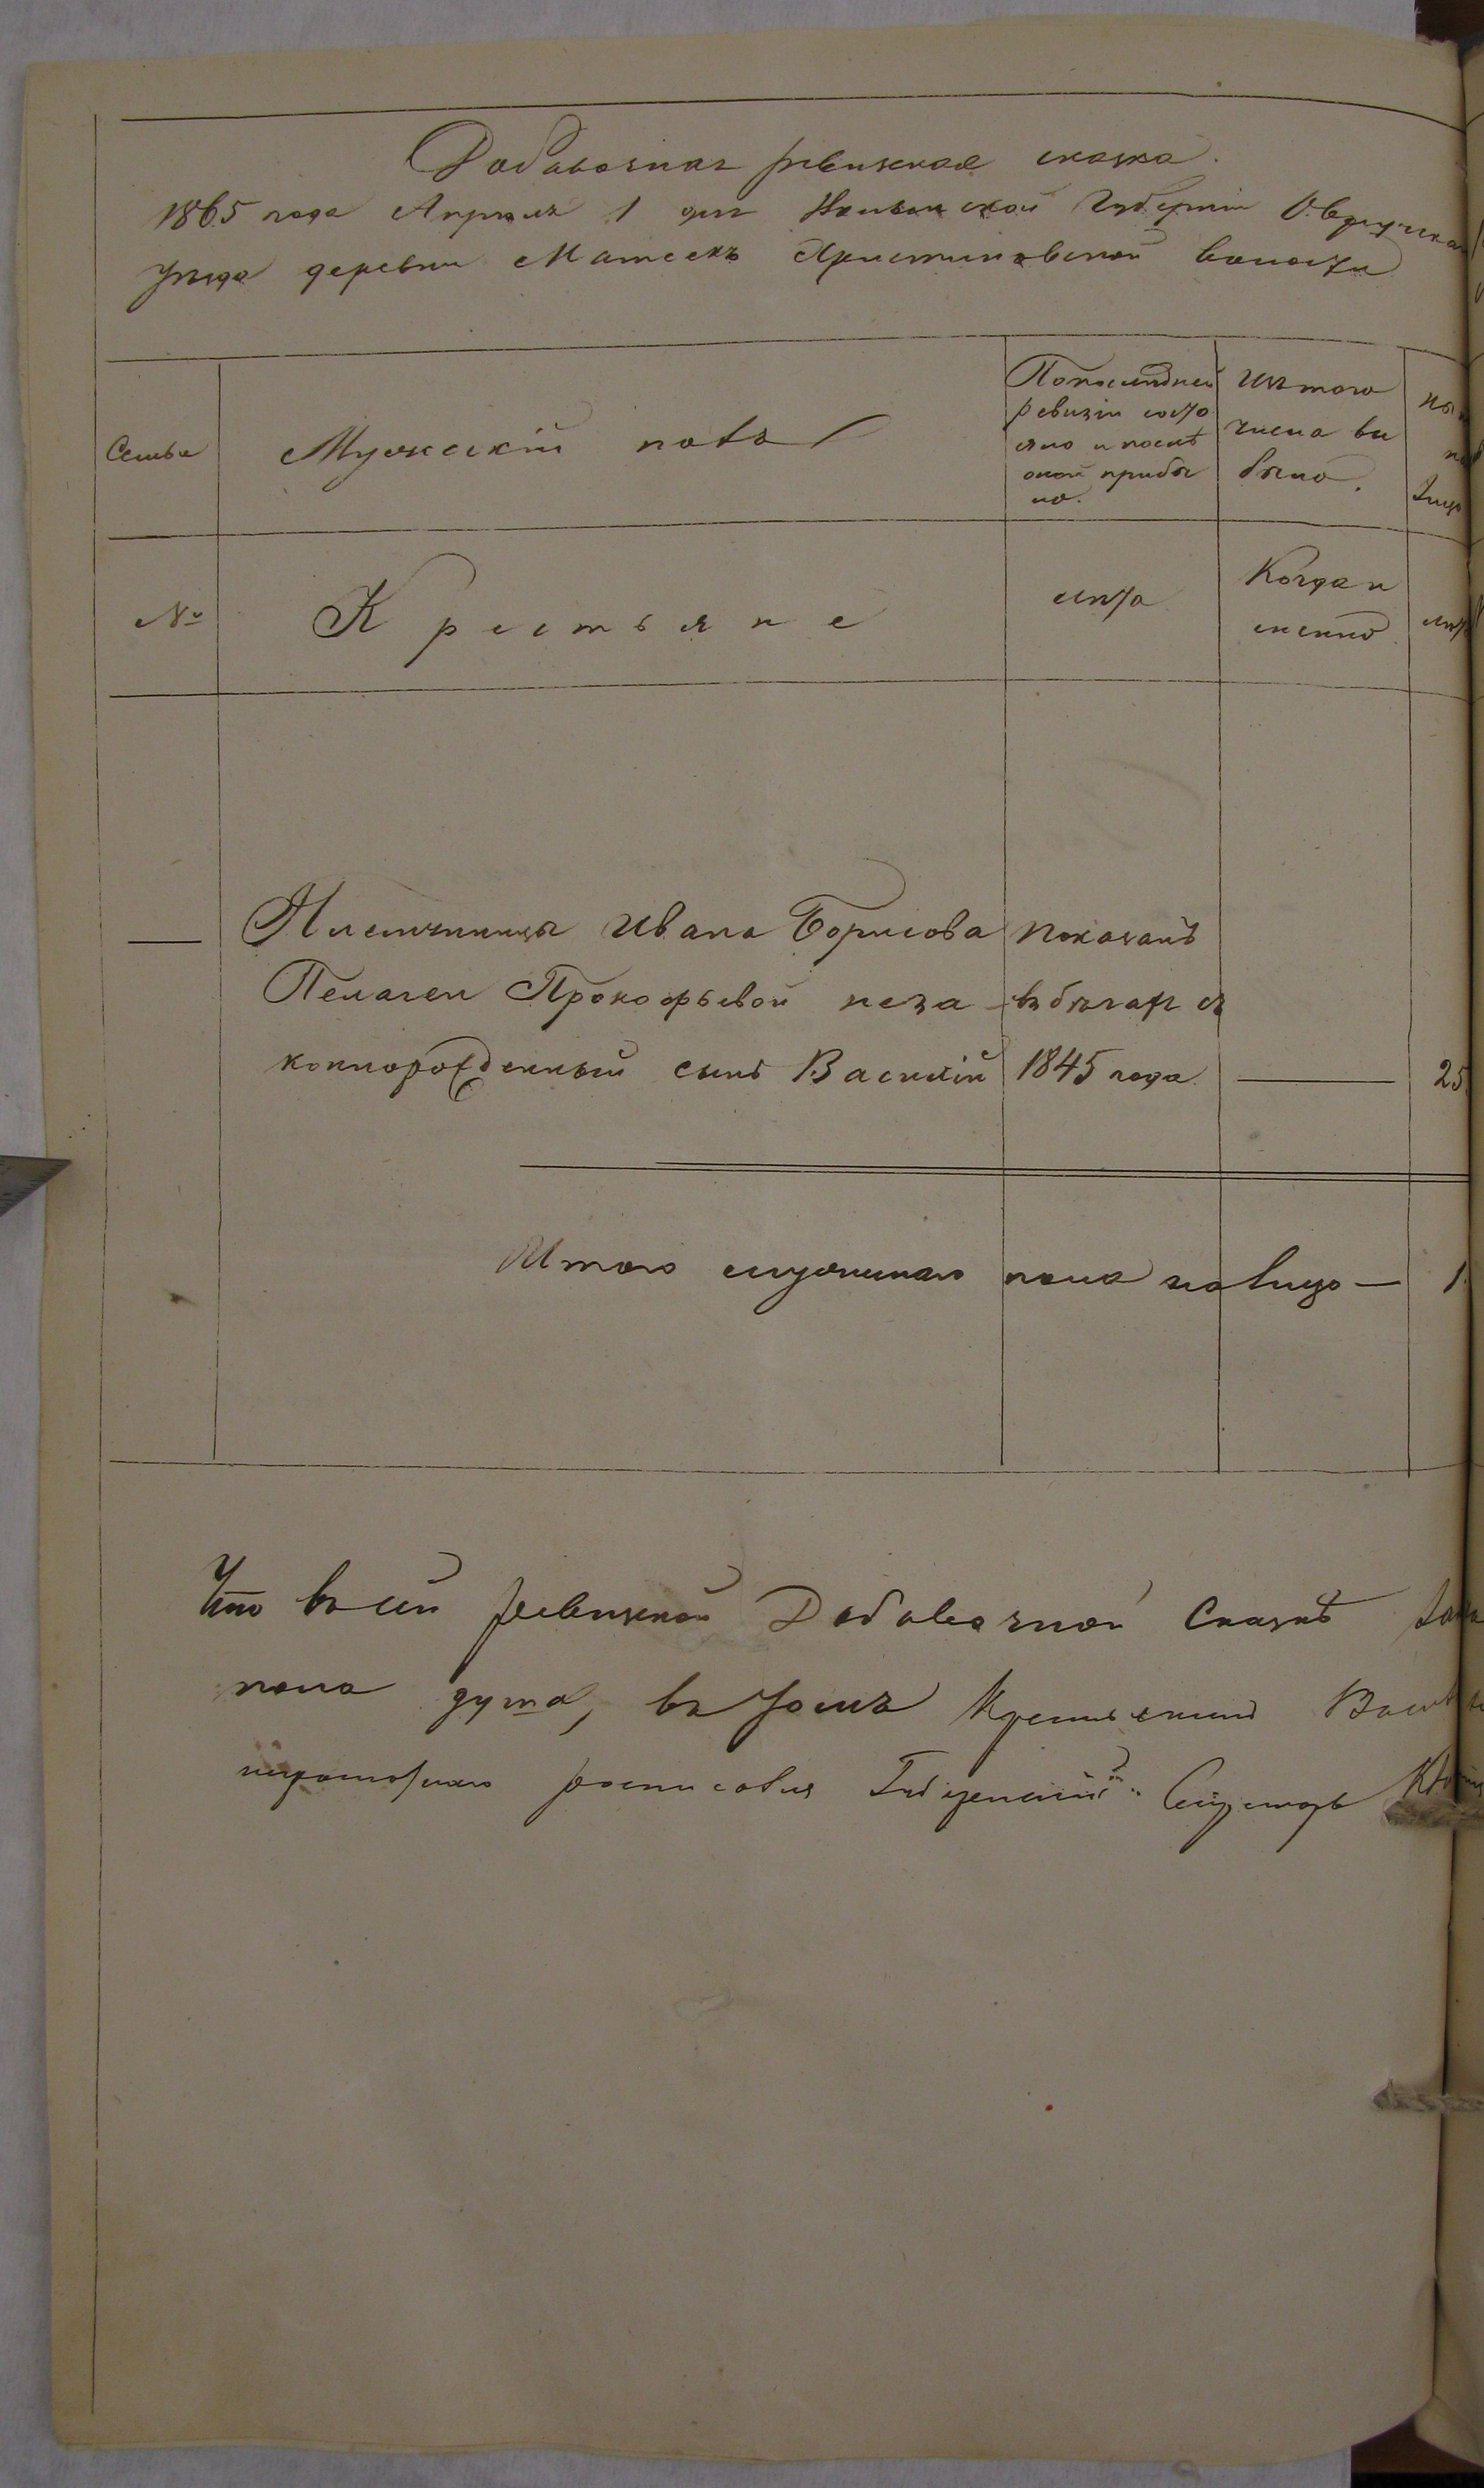 Добавочная ревизская сказка.
1865 года Апреля 1 дня Волынской Губерніи Овручска
уезда деревни Матеекъ Христиновской волости
Семьи
Мужескій полъ
По последней
ревизіи состо
яло и послѣ
оной прибы
ло.
Изъ того
числа вы
было.
лицо
№
Крестьяне
лѣта
Когда и
менно
лѣт
Племянницы Ивана Борисова
Пелагеи Прокофьевой неза
коннорожденный сынъ Василій
показанъ
въ бѣгахъ съ
1845 года
25
Итого мужескаго пола на лицо — 1
Что въ сей ревизской Добавочной Сказкѣ
пола душа, въ томъ Крестьянинъ
неграмотнаго росписался